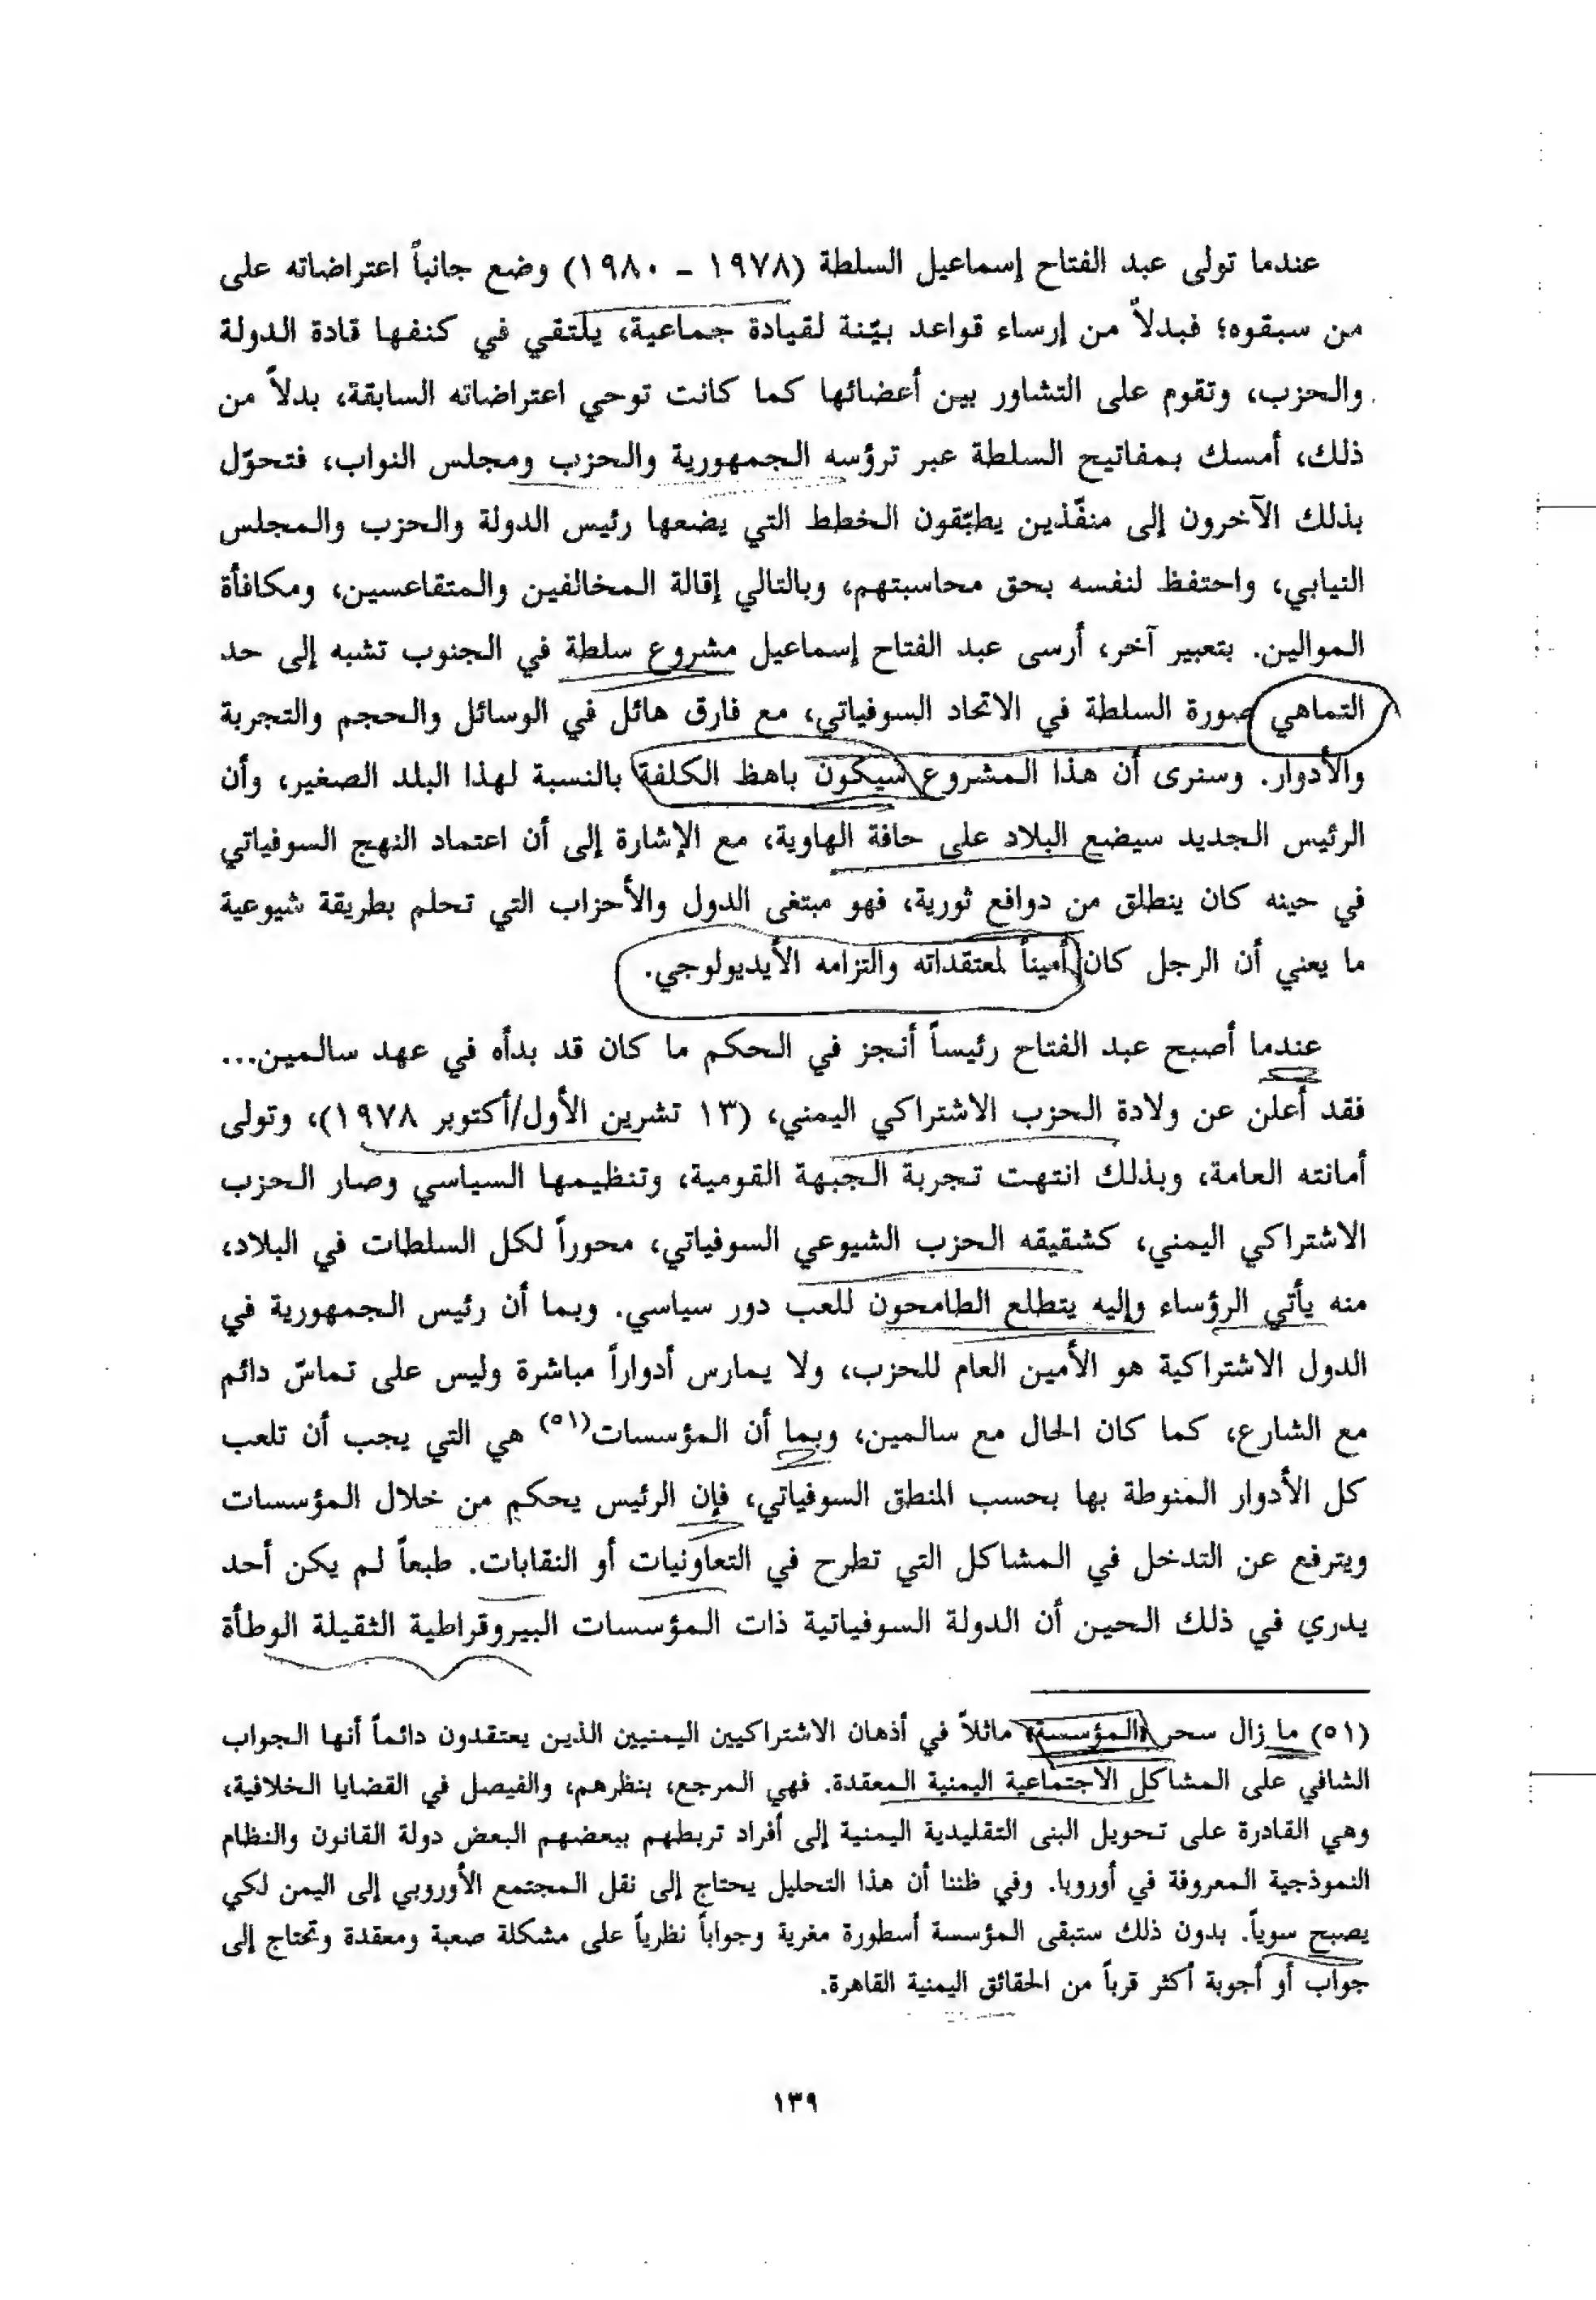 عندما تولى عبد الفتاح إسماعيل السلطة (١٩٧٨ - ١٩٨٠) وضع جانباً اعتراضاته على
من سبقوه؛ فبدلاً من إرساء قواعد بيّنة لقيادة جماعية، يلتقي في كنفها قادة الدولة
والحزب، وتقوم على التشاور بين أعضائها كما كانت توحي اعتراضاته السابقة، بدلاً من
ذلك، أمسك بمفاتيح السلطة عبر ترؤسه الجمهورية والحزب ومجلس النواب، فتحوّل
بذلك الآخرون إلى منفّذين يطبّقون الخطط التي يضعها رئيس الدولة والحزب والمجلس
النيابي، واحتفظ لنفسه بحق محاسبتهم، وبالتالي إقالة المخالفين والمتقاعسين، ومكافأة
الموالين. بتعبير آخر، أرسى عبد الفتاح إسماعيل مشروع سلطة في الجنوب تشبه إلى حد
التماهي صورة السلطة في الاتحاد السوفياتي، مع فارق هائل في الوسائل والحجم والتجربة
والأدوار. وسنرى أن هذا المشروع سيكون باهظ الكلفة بالنسبة لهذا البلد الصغير، وأن
الرئيس الجديد سيضع البلاد على حافة الهاوية، مع الإشارة إلى أن اعتماد النهج السوفياتي
في حينه كان ينطلق من دوافع ثورية، فهو مبتغى الدول والأحزاب التي تحلم بطريقة شيوعية
ما يعني أن الرجل كان أميناً لمعتقداته والتزامه الأيديولوجي.
عندما أصبح عبد الفتاح رئيساً أنجز في الحكم ما كان قد بدأه في عهد سالمين...
فقد أعلن عن ولادة الحزب الاشتراكي اليمني، (١٣ تشرين الأول/أكتوبر ١٩٧٨)، وتولى
أمانته العامة، وبذلك انتهت تجربة الجبهة القومية، وتنظيمها السياسي وصار الحزب
الاشتراكي اليمني، كشقيقه الحزب الشيوعي السوفياتي، محوراً لكل السلطات في البلاد،
منه يأتي الرؤساء وإليه يتطلع الطامحون للعب دور سياسي. وبما أن رئيس الجمهورية في
الدول الاشتراكية هو الأمين العام للحزب، ولا يمارس أدواراً مباشرة وليس على تماسّ دائم
مع الشارع، كما كان الحال مع سالمين، وبما أن المؤسسات(٥١) هي التي يجب أن تلعب
كل الأدوار المنوطة بها بحسب المنطق السوفياتي، فإن الرئيس يحكم من خلال المؤسسات
ويترفع عن التدخل في المشاكل التي تطرح في التعاونيات أو النقابات. طبعاً لم يكن أحد
يدري في ذلك الحين أن الدولة السوفياتية ذات المؤسسات البيروقراطية الثقيلة الوطأة
(٥١) ما زال سحر «المؤسسة» ماثلاً في أذهان الاشتراكيين اليمنيين الذين يعتقدون دائماً أنها الجواب
الشافي على المشاكل الاجتماعية اليمنية المعقدة. فهي المرجع، بنظرهم، والفيصل في القضايا الخلافية،
وهي القادرة على تحويل البنى التقليدية اليمنية إلى أفراد تربطهم ببعضهم البعض دولة القانون والنظام
النموذجية المعروفة في أوروبا. وفي ظننا أن هذا التحليل يحتاج إلى نقل المجتمع الأوروبي إلى اليمن لكي
يصبح سوياً. بدون ذلك ستبقى المؤسسة أسطورة مغرية وجواباً نظرياً على مشكلة صعبة ومعقدة وتحتاج إلى
جواب أو أجوبة أكثر قرباً من الحقائق اليمنية القاهرة.
١٣٩